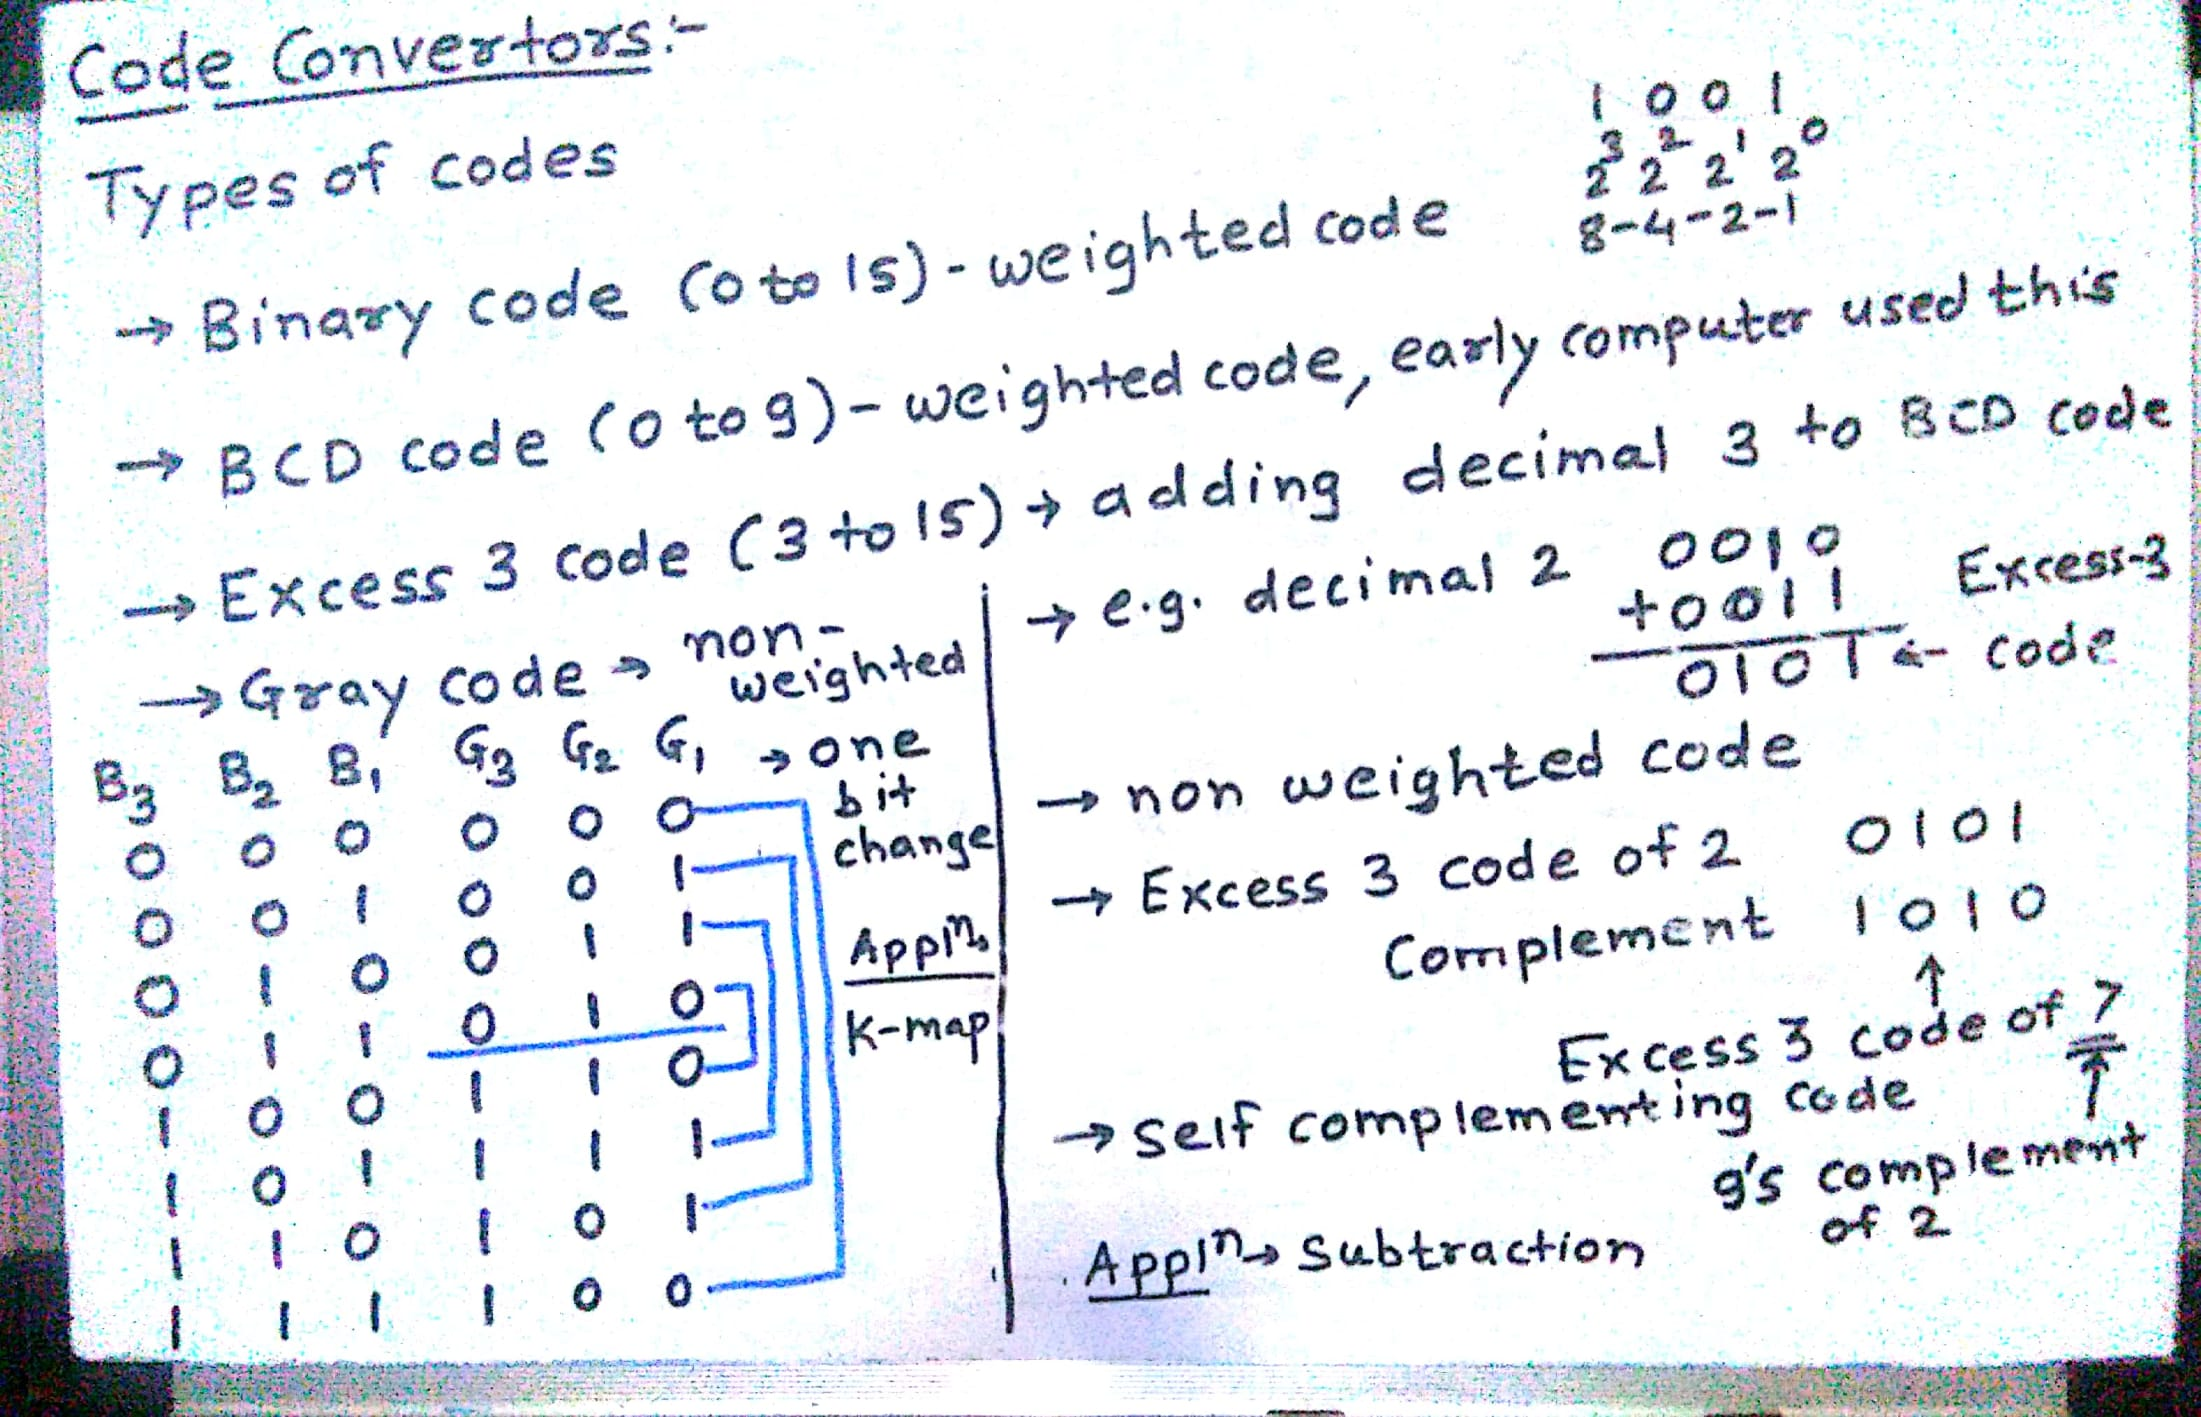 Code Convertors:-
Types of codes
1 0 0 1
2³ 2² 2¹ 2⁰
8-4-2-1
→ Binary code (0 to 15) - weighted code
→ BCD code (0 to 9) - weighted code, early computer used this
→ Excess 3 code (3 to 15) → adding decimal 3 to BCD code
→ Gray code → non-
weighted
B₃ B₂ B₁ G₃ G₂ G₁ → one
bit
change
0 0 0 0 0 0
0 0 1 0 0 1
0 1 0 0 1 1
0 1 1 0 1 0
1 0 0 1 1 0
1 0 1 1 1 1
1 1 0 1 0 1
1 1 1 1 0 0
Applⁿ→
K-map
→ e.g. decimal 2 0010
+0011 Excess-3
0101 ← code
→ non weighted code
→ Excess 3 code of 2 0101
Complement 1010
↑
Excess 3 code of 7
↑
→ self complementing code
9's complement
of 2
Applⁿ→ Subtraction